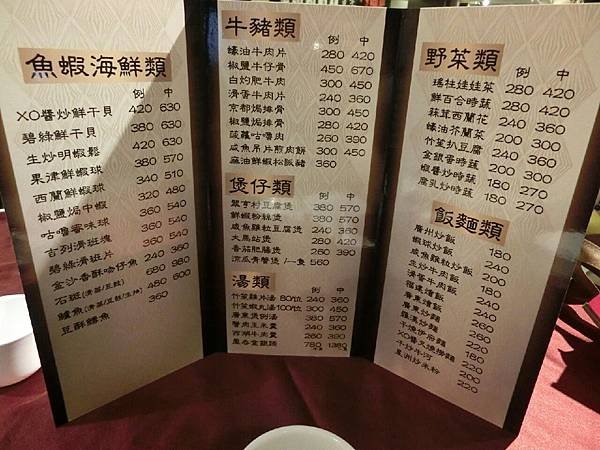 魚蝦海鮮類
例 中
XO醬炒鮮干貝 420 630
碧綠鮮干貝 380 630
生炒明蝦鬆 420 630
果津鮮蝦球 380 570
西蘭鮮蝦球 340 510
椒鹽焗中蝦 320 480
咕嚕睿味球 360 540
吉列滑班塊 360 540
碧綠滑班片 360 540
金沙香酥咕仔魚 240 360
石斑(清蒸/豆鼓) 680 980
鱸魚(清蒸/豆鼓/生抽) 480 600
豆酥鱈魚 360
牛豬類
例 中
蠔油牛肉片 280 420
椒鹽牛仔骨 450 670
白灼肥牛肉 300 450
滑蛋牛肉片 240 360
京都焗排骨 300 450
椒鹽焗排骨 300 450
菠蘿咕嚕肉 260 390
咸魚吊片煎肉餅 300 450
麻油鮮蝦松阪豬 360
煲仔類
翠亨村豆腐煲 380 570
鮮蝦粉絲煲 380 570
咸魚雞粒豆腐煲 240 360
大馬站煲 280 420
香茄肥腸煲 260 390
涼瓜青蟹煲/一隻 560
湯類
例 中
竹笙雞片湯 80位 240 360
竹笙蝦丸湯100位 300 450
廣東煲例湯 380 570
蟹肉玉米羹 240 360
西湖牛肉羹 240 360
780 1380
野菜類
例 中
瑤柱娃娃菜 280 420
鮮百合時蔬 280 420
蒜茸西蘭花 240 360
蠔油芥蘭菜 200 300
竹笙扒豆腐 240 360
金銀蛋時蔬 200 300
蝦醬炒時蔬 180 270
腐乳炒時蔬 180 270
飯麵類
廣州炒飯 180
蝦球炒飯 240
咸魚雞粒炒飯 200
生炒牛肉飯 200
滑蛋牛肉飯 240
福建燴飯 240
廣東燴飯 240
廣東炒麵 260
羅漢炒麵 220
干燒伊府麵 220
XO醬叉燒撈麵 180
干炒牛河 200
星洲炒米粉 220